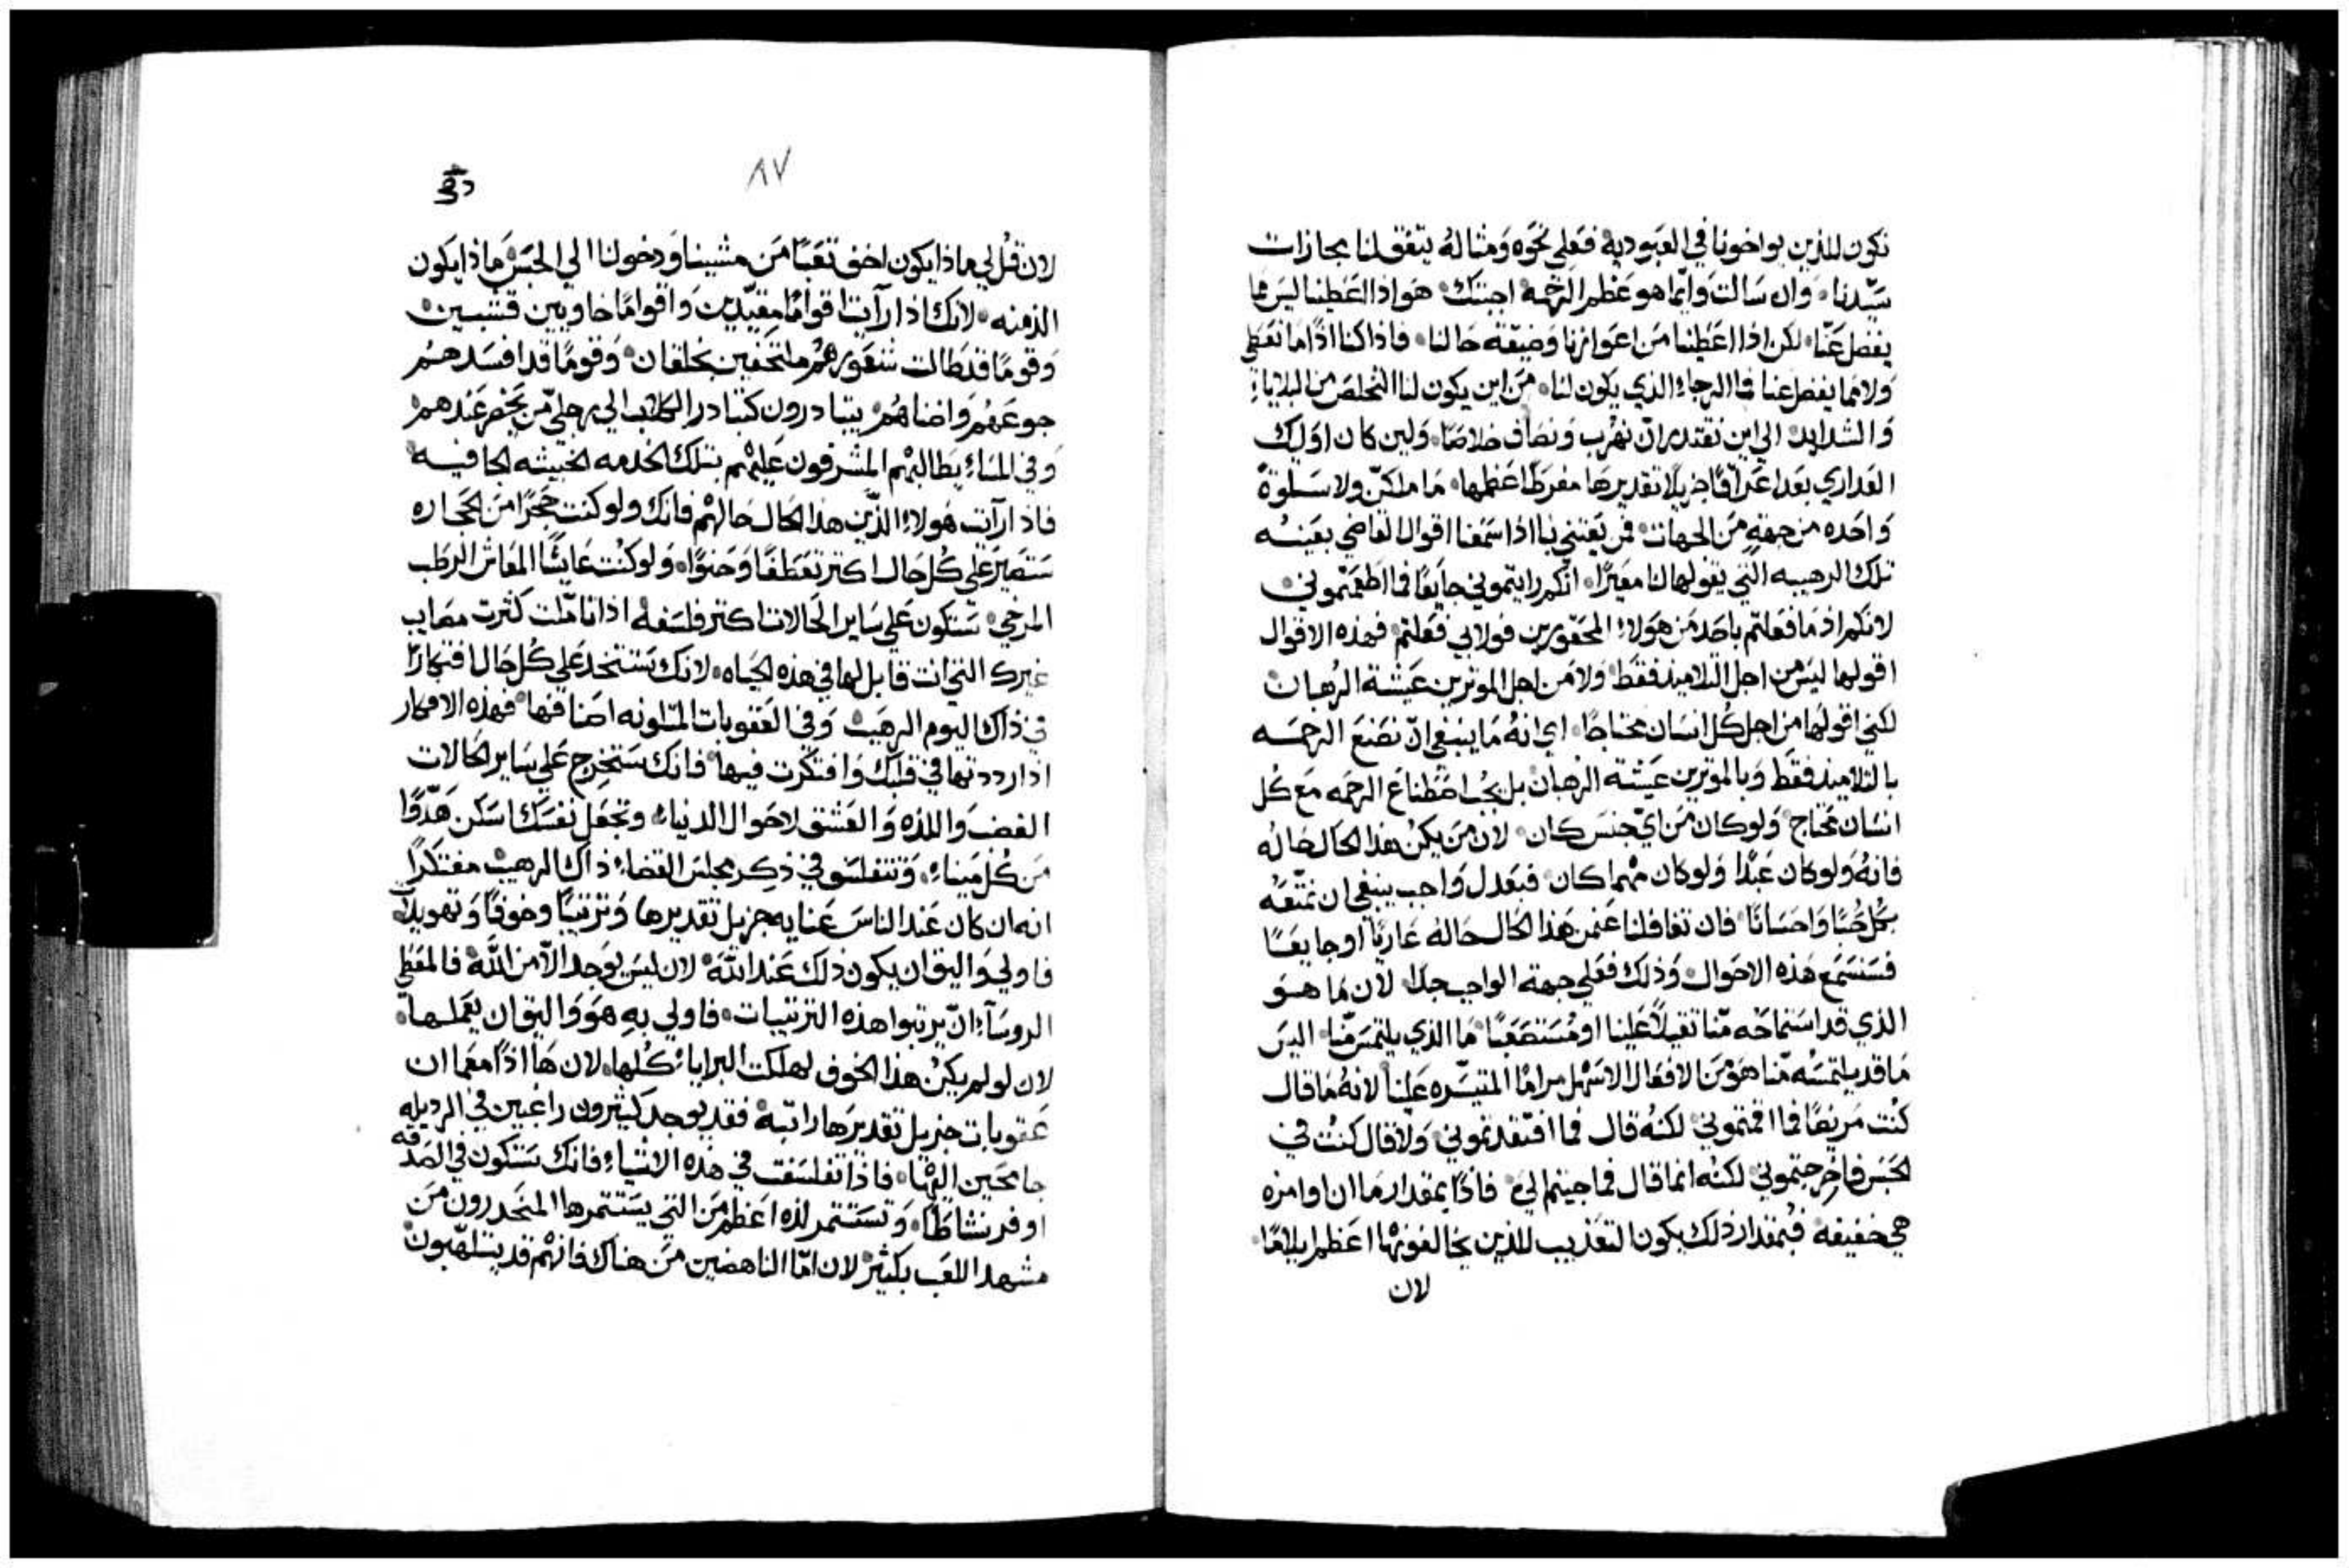 نكون للذين يواخونا في العبوديه فعلي نحوه ومثاله يتفق لنا مجازات
سيدنا وان سالت وايما هو عظم الرحمه اجبتك هو اذا اعطينا ليس مما
يفضل عنا لكن اذا اعطينا من اعوازنا وضيقة حالنا فاذا كنا اذا ما نعطي
ولا مما يفضل عنا فما الرجاء الذي يكون لنا من اين يكون لنا التخلص من البلاياء
والشدايد الي اين نقتدر ان نهرب ونصادف خلاصا ولين كان اوليك
العداري بعد اعراقا جزيلا تقديرها مفرطا عظمها ما ملكن ولا سلوة
واحده من جهة من الجهات فمن يعتني بنا اذا سمعنا اقوال القاضي بعينه
تلك الرهيبه التي يقولها لنا معيرا انكم رايتموني جايعا فما اطعمتموني
لانكم اذ ما فعلتم باحد من هولاء المحقورين فولا بي فعلتم فهذه الاقوال
اقولها ليس من اجل التلاميذ فقط ولا من اجل الموترين عيشة الرهبان
لكني اقولها من اجل كل انسان محتاجا اي انه ما ينبغي ان نصنع الرحمه
بالتلاميذ فقط وبالموترين عيشة الرهبان بل يجب اصطناع الرحمه مع كل
انسان محتاج ولو كان من اي جنس كان لان من يكن هذا الحال حاله
فانه ولو كان عبدا ولو كان مهما كان فبعدل واجب ينبغي ان نمتعه
بكل حبا واحسانا فان تغافلنا عمن هذا الحال حاله عاريا او جايعا
فسنسمع هذه الاحوال وذلك فعلي جهة الواجب جدا لان ما هو
الذي قد استماحه منا ثقيلا علينا او مستصعبا ما الذي يلتمس منا اليس
ما قد يلتمسه منا هو من الافعال الاسهل مراما المتيسره علينا لانه ما قال
كنت مريضا فما اقمتموني لكنه قال فما افتقدتموني ولا قال كنت في
الحبس فما اخرجتموني لكنه انما قال فما جيتم الي فاذا بمقدار ما ان اوامره
هي خفيفه فبمقدار ذلك يكون التعذيب للذين يخالفونها اعظم ايلاما
لان
٨٧
لان قل لي ماذا يكون اخف تعبا من مشينا ودخولنا الي الحبس ماذا يكون
الذ منه لانك اذا رآيت اقواما مقيدين واقواما خاويين قشبين
وقوما قد طالت شعورهم ملتحفين بخلقان وقوما قد افسدهم
جوعهم واضناهم يتبادرون كتبادر الكلاب الي رجلي من يحضر عندهم
وفي المساء يطالبهم المشرفون عليهم بتلك الخدمه الخبيثه الجافيه
فاذا رآيت هولاء الذين هذا الحال حالهم فانك ولو كنت حجرا من الحجاره
ستصير علي كل حال اكتر تعطفا وحنوا ولو كنت عايشا المعاش الرطب
المرخي ستكون علي ساير الحالات اكتر فلسفه اذا تاملت كثرت مصايب
غيرك التي انت قابل لها في هذه الحياه لانك ستتخد علي كل حال افتكارا
في ذاك اليوم الرهيب وفي العقوبات المتلونه اصنافها فهذه الافكار
اذا رددتها في قلبك وافتكرت فيها فانك ستخرج علي ساير الحالات
الغضب واللذه والعشق لاحوال الدنياء وتجعل نفسك اسكن هدوا
من كل ميناء وتتفلسف في ذكر مجلس القضاء ذاك الرهيب مفتكرا
انه ان كان عند الناس عنايه جزيل تقديرها وترتيبا وخوفا وتهويلا
فاولي واليق ان يكون ذلك عند الله لان ليس يوجد الا من الله فالمعطي
الروسآء ان يرتبوا هذه الترتيبات فاولي به هو واليق ان يعملها
لان لو لم يكن هذا الخوف لهلكت البراياء كلها لان ها اذا معما ان
عقوبات جزيل تقديرها راتبه فقد يوجد كثيرون راغبين في الرديله
جامحين اليها فاذا تفلسفت في هذه الاشياء فانك ستكون في الصدقه
اوفر نشاطا وتستتمر لذه اعظم من التي يستتمرها المنحدرون من
مشهد اللعب بكثير لان اما الناهضين من هناك فانهم قد يتلهبون